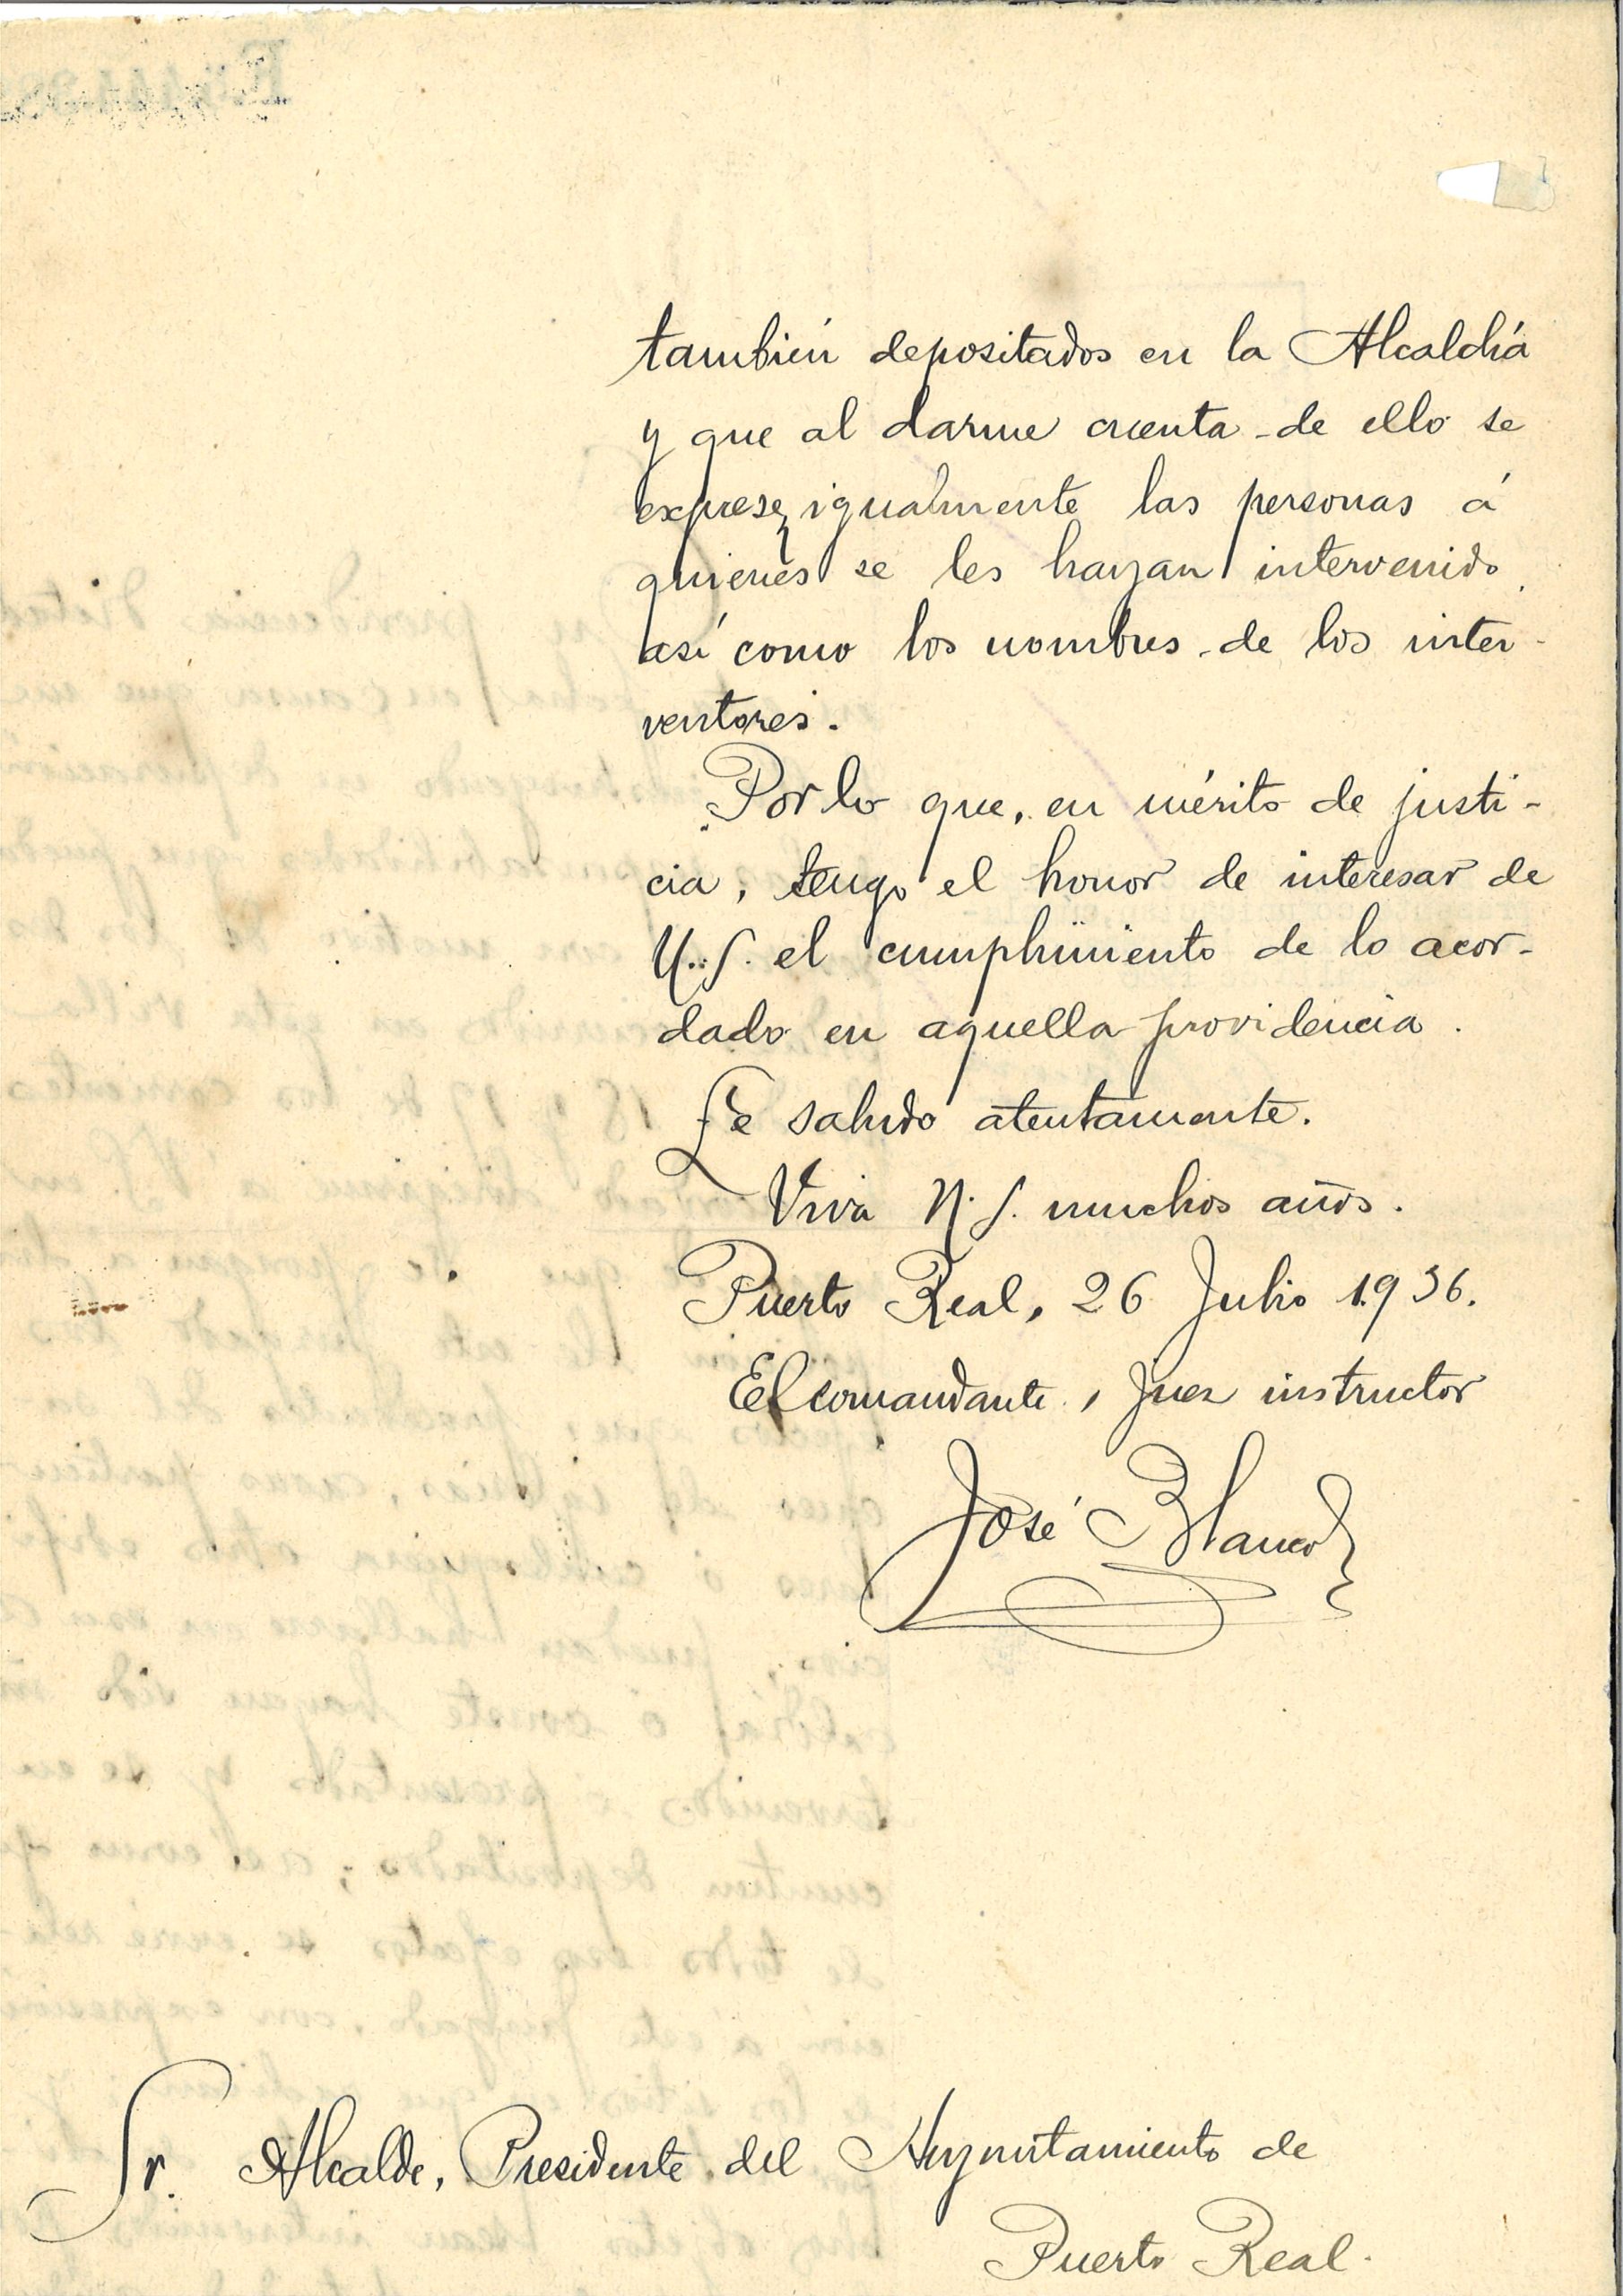 también depositados en la Alcaldía
y que al darme cuenta de ello se
exprese igualmente las personas á
quienes se les hayan intervenido
así como los nombres de los inter-
ventores.
Por lo que, en mérito de justi-
cia, tengo el honor de interesar de
V.S. el cumplimiento de lo acor-
dado en aquella providencia.
Le saludo atentamente.
Viva V.S. muchos años.
Puerto Real, 26 Julio 1.936.
El comandante, Juez instructor
José Blanco
Sr. Alcalde, Presidente del Ayuntamiento de
Puerto Real.